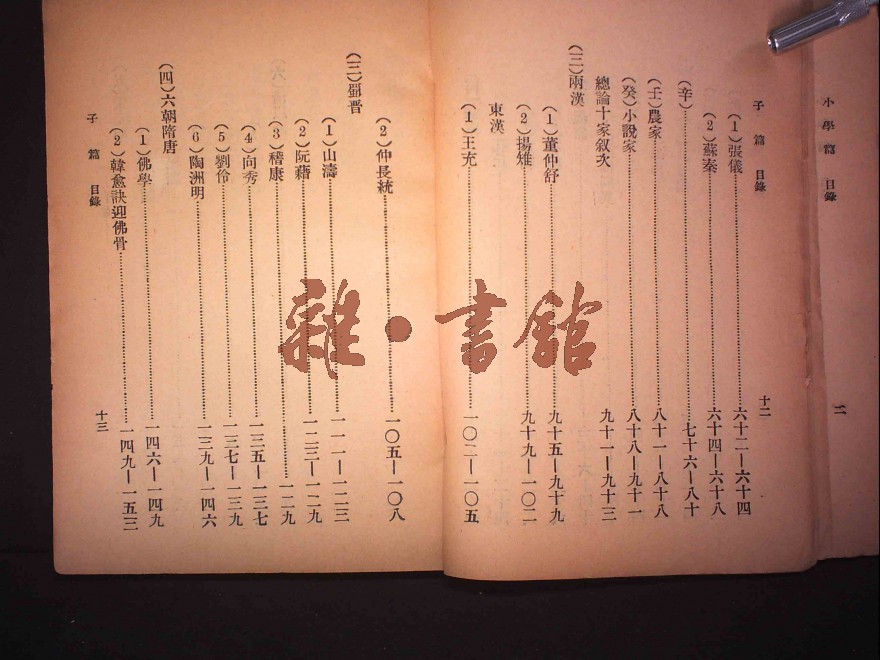 小學篇 目錄 二
子篇 目錄 十二
(1)張儀 六十二—六十四
(2)蘇秦 六十四—六十八
(辛) 七十六—八十
(壬)農家 八十一—八十八
(癸)小說家 八十八—九十一
總論十家敘次 九十一—九十三
(二)兩漢
(1)董仲舒 九十五—九十九
(2)揚雄 九十九—一〇二
東漢
(1)王充 一〇二—一〇五
(2)仲長統 一〇五—一〇八
(三)魏晉
(1)山濤 一一一—一二三
(2)阮藉 一二三—一二九
(3)稽康 一二九
(4)向秀 一三五—一三七
(5)劉伶 一三七—一三九
(6)陶淵明 一三九—一四六
(四)六朝隋唐
(1)佛學 一四六—一四九
(2)韓愈訣迎佛骨 一四九—一五三
子篇 目錄 十三
雜·書館